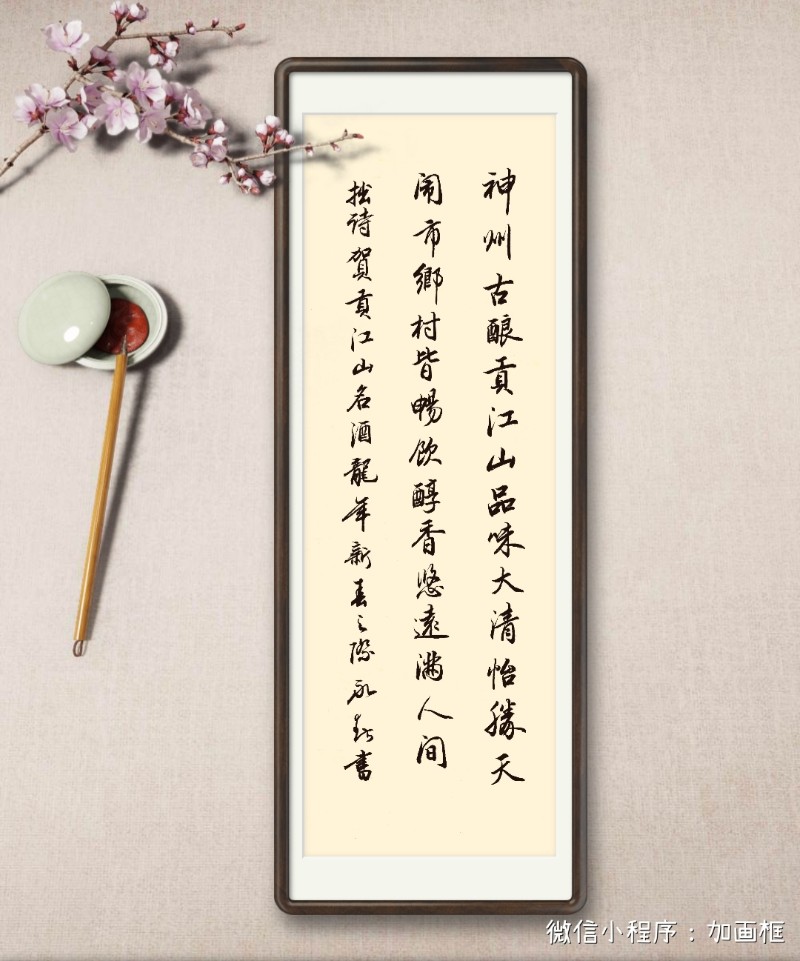 神州古酿贡江山品味大清怡勝天
闹市鄉村皆暢飲醇香悠遠满人间
拙诗賀贡江山名酒龍年新春之際永
書
微信小程序：加画框